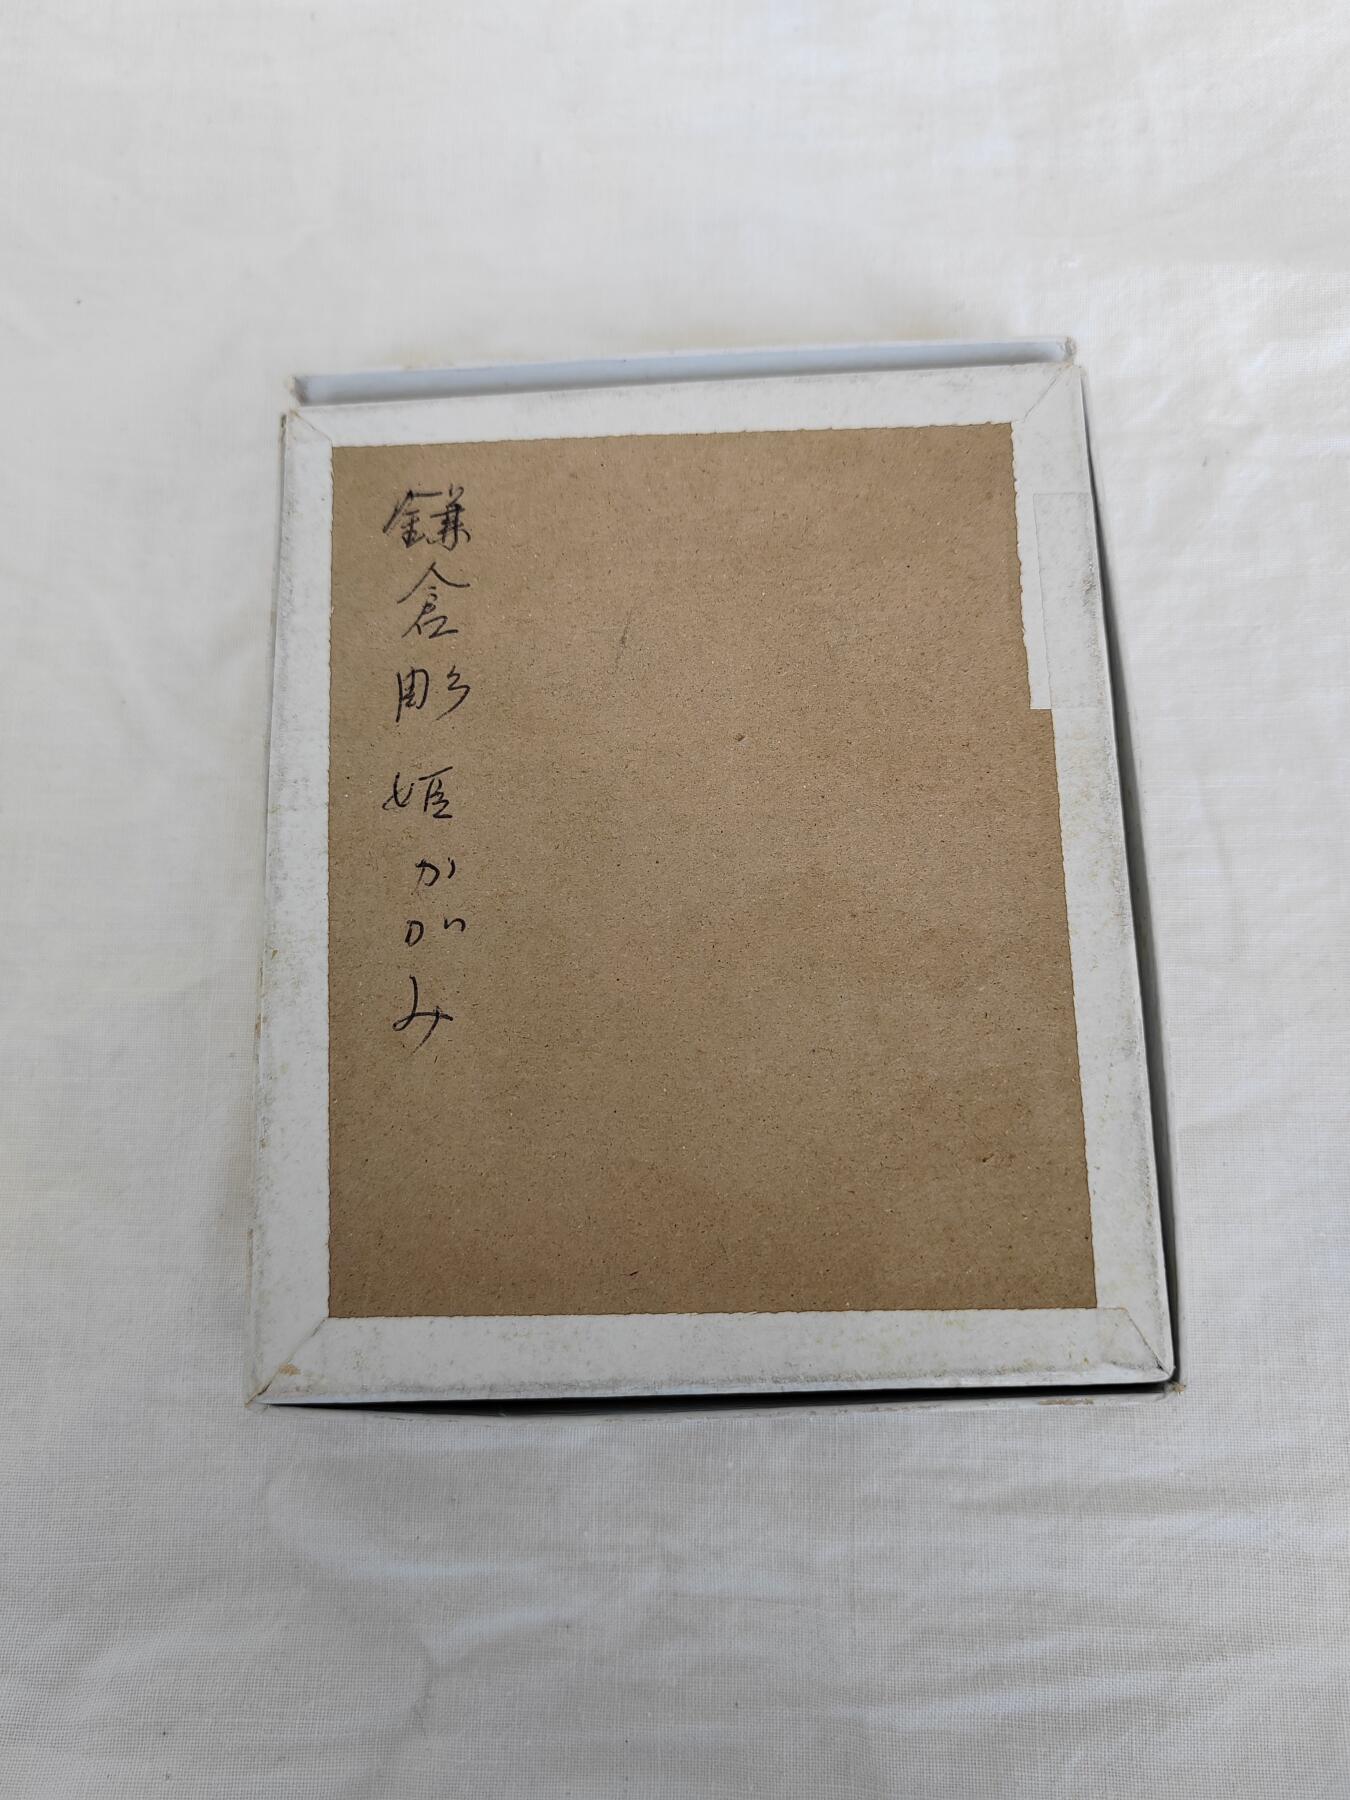 鎌倉彫 姫かがみ